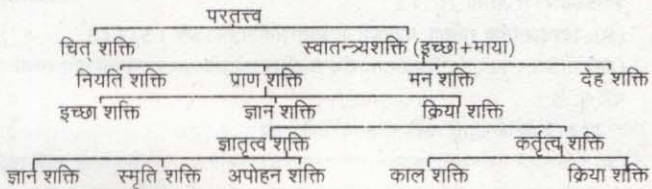 परतत्त्व
चित् शक्ति स्वातन्त्र्यशक्ति (इच्छा+माया)
नियति शक्ति प्राण शक्ति मन शक्ति देह शक्ति
इच्छा शक्ति ज्ञान शक्ति क्रिया शक्ति
ज्ञातृत्व शक्ति कर्तृत्व शक्ति
ज्ञान शक्ति स्मृति शक्ति अपोहन शक्ति काल शक्ति क्रिया शक्ति